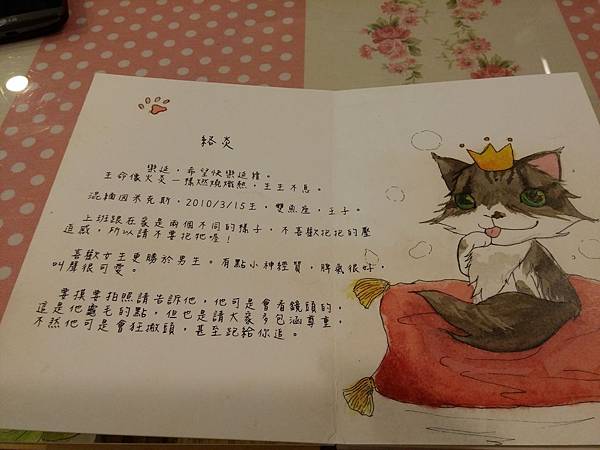 絡炎
樂延,希望快樂延續。
王命像火炎一樣燃燒熾熱,王王不息。
混緬因米克斯,2010/3/15王,雙魚座,王子。
上班跟在家是兩個不同的樣子,不喜歡抱抱的壓
迫感,所以請不要抱他喔!
喜歡女王更勝於男王。有點小神經質,脾氣很好,
叫聲很可愛。
要摸要拍照請告訴他,他可是會看鏡頭的,
這是他龜毛的點,但也是請大家多包涵尊重,
不然他可是會狂撇頭,甚至記給你追。